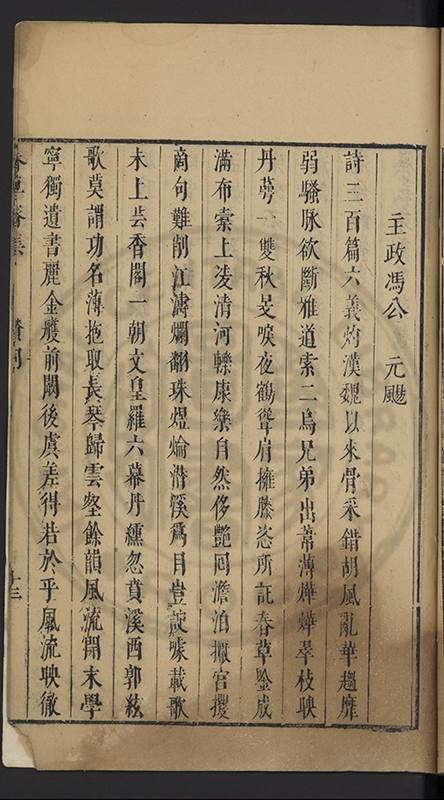 主政馮公　元颺
詩三百篇六義灼漢魏以來骨采錯胡風亂華趨靡
弱騷脉欲斷雅道索二烏兄弟出萼薄燁燁翠枝映
丹萼一雙秋旻唳夜鶴聳肩擁膝恣所託春草塗成
滿布素上凌清河轢康樂自然侈艷同澹泊擬宮擭
商句難削江濤爛翻珠煜爚潛溪爲目豈諛噱載歌
未上芸香閣一朝文皇羅六幕丹纁忽賁溪西郭絃
歌莫謂功名薄拖取長琴歸雲壑餘韻風流開末學
寧獨遺書麗金雘前闕後虞差得若於乎風流映徹
十三